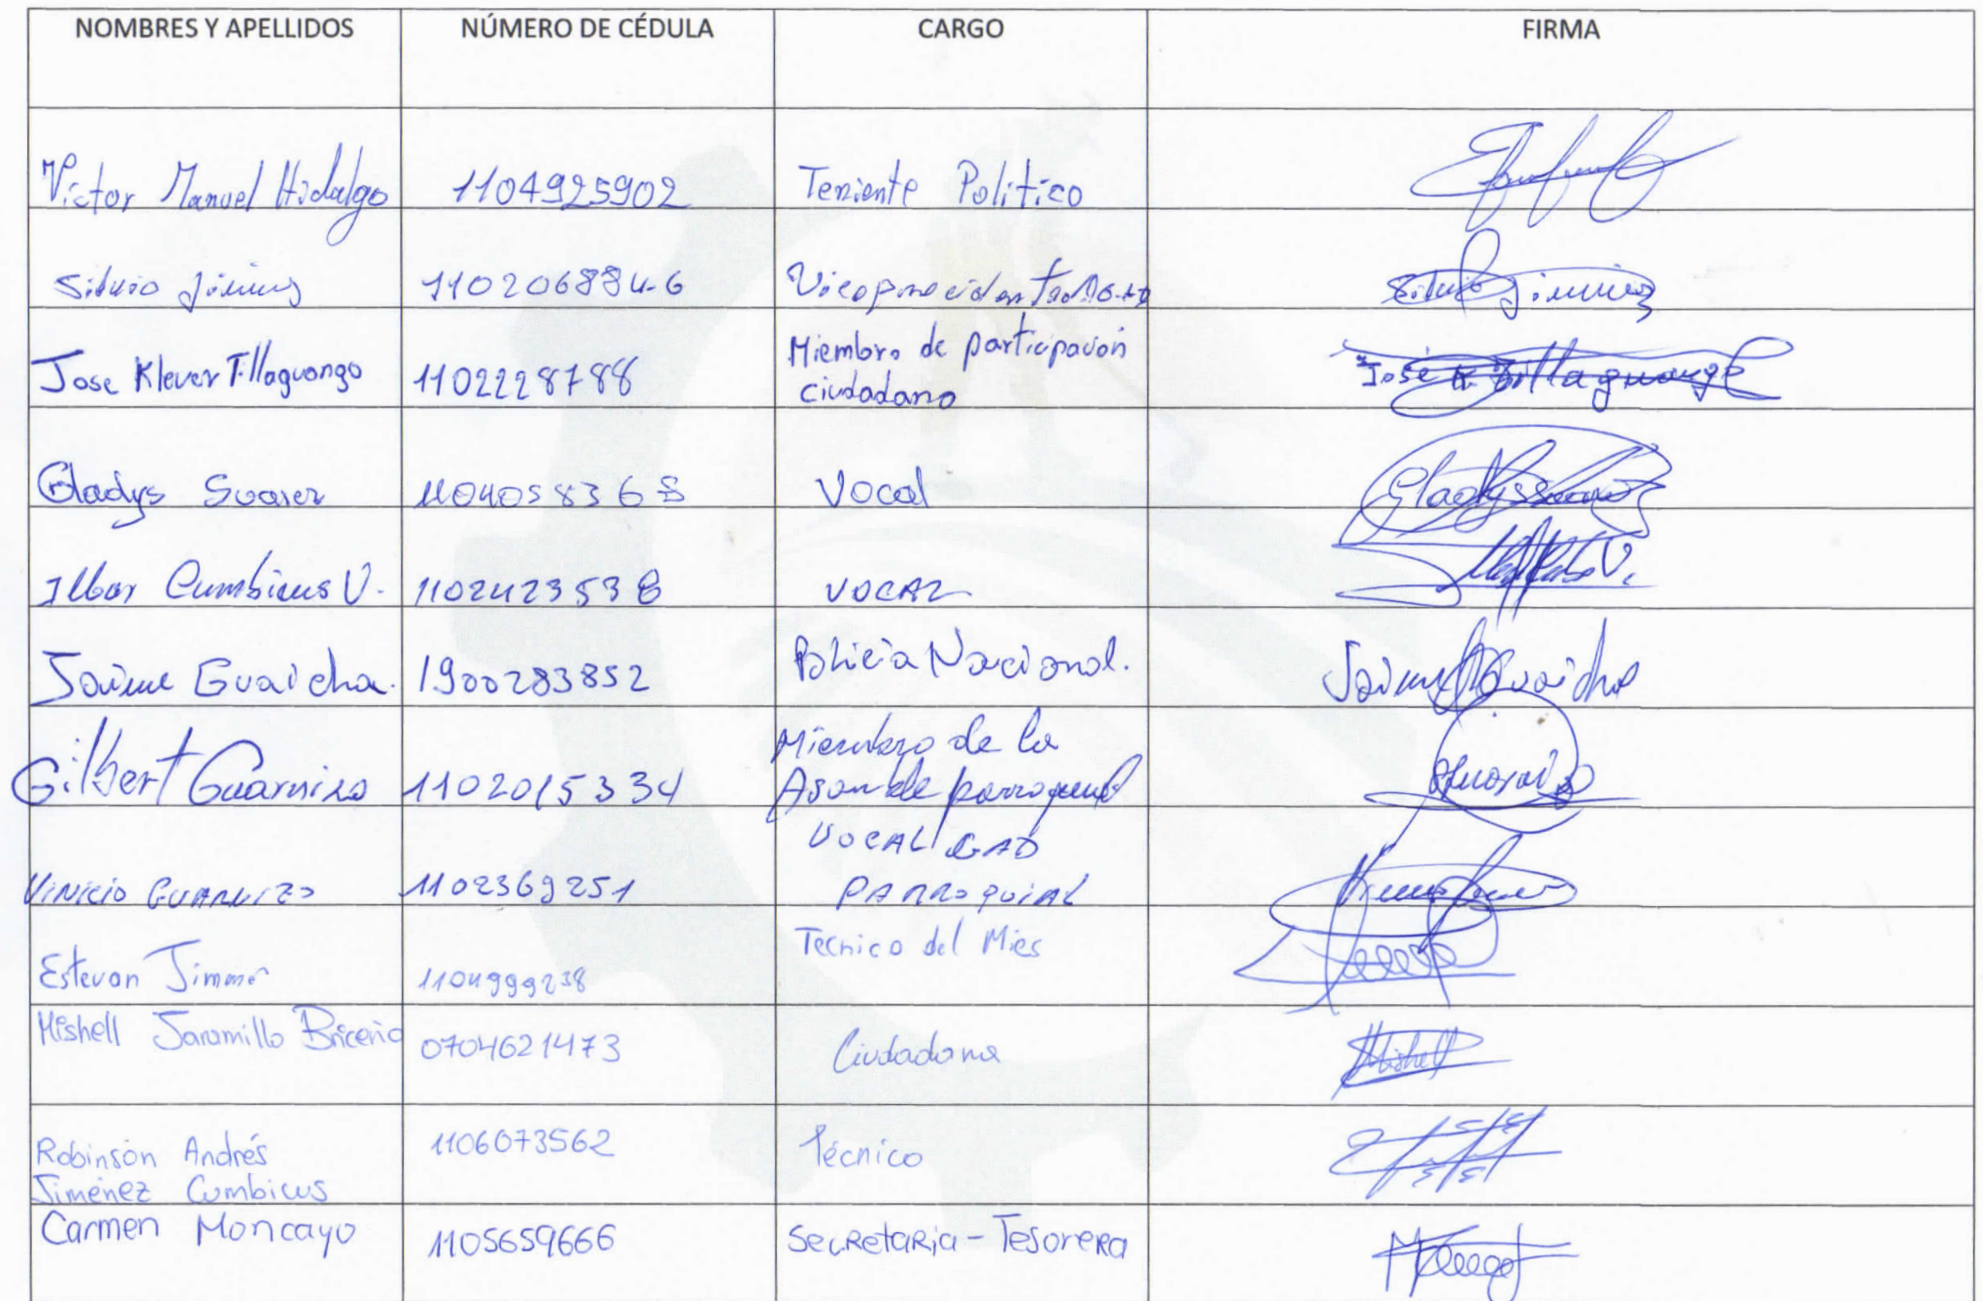 NOMBRES Y APELLIDOS NÚMERO DE CÉDULA CARGO FIRMA
Victor Manuel Hidalgo 1104925902 Teniente Politico
Silvio 1102068846
Jose Klever Tillaguango 1102228788 Miembro de participación
ciudadano José K Tillaguango
Gladys Suarez 1104058368 Vocal Gladys Suarez
Ilbar Cumbicus V. 1102423538 VOCAL
Jaime Guaicha. 1900283852 Policia Nacional. Jaime Guaicha
Gilbert Guarnizo 1102015334 Miembro de la
Asamble parroquial
Vinicio Guarnizo 1102369251 VOCAL GAD
PARROQUIAL
Estevan 1104999238 Tecnico del Mies
Mishell Jaramillo Briceño 0704621473 Ciudadana Mishell
Robinson Andrés
Jiménez Cumbicus 1106073562 Técnico
Carmen Moncayo 1105659666 Secretaria - Tesorera